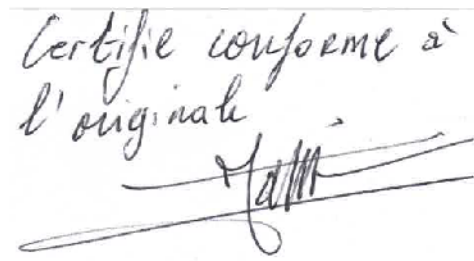 Certifie conforme à
l'originale